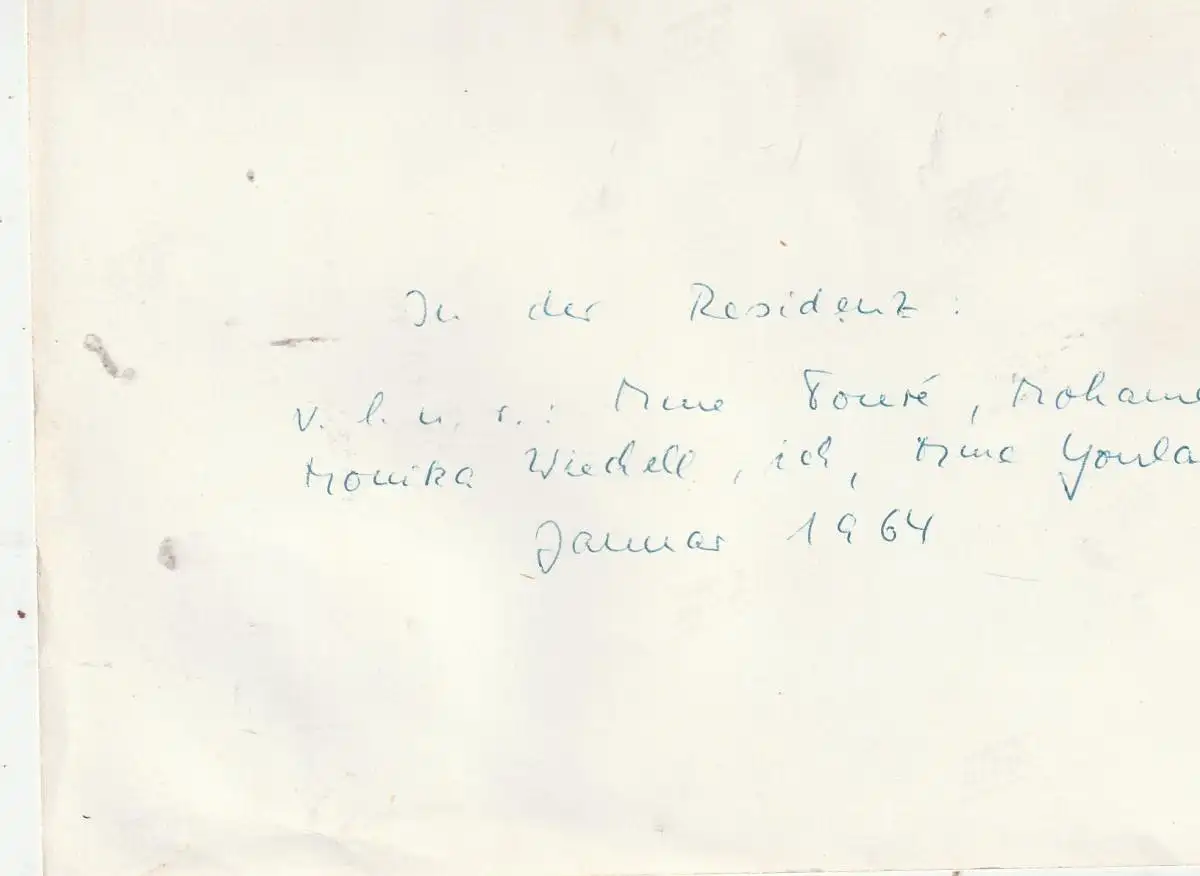 In der Residenz:
v. l. n. r.: Mme Touré, Mohame
Monika Wiedell, ich, Mme Youla
Januar 1964